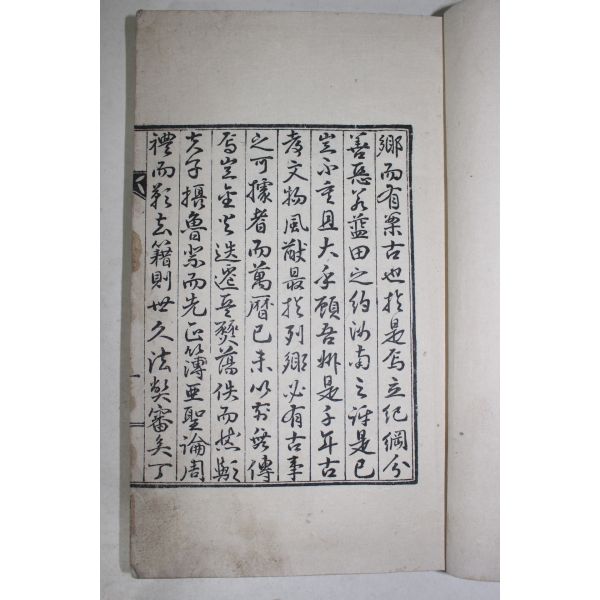 鄕而有案古也於是焉立紀綱分
善惡若藍田之約汝南之評是已
豈不重且大乎顧吾州是千年古
孝文物風猷最於列鄕必有古事
之可據者而萬曆已未以前無傳
焉豈金火迭遷無燹蕩佚而然歟
夫子攝魯祭而先正簿亞聖論周
禮而歎去籍則世久法弊審矣丁